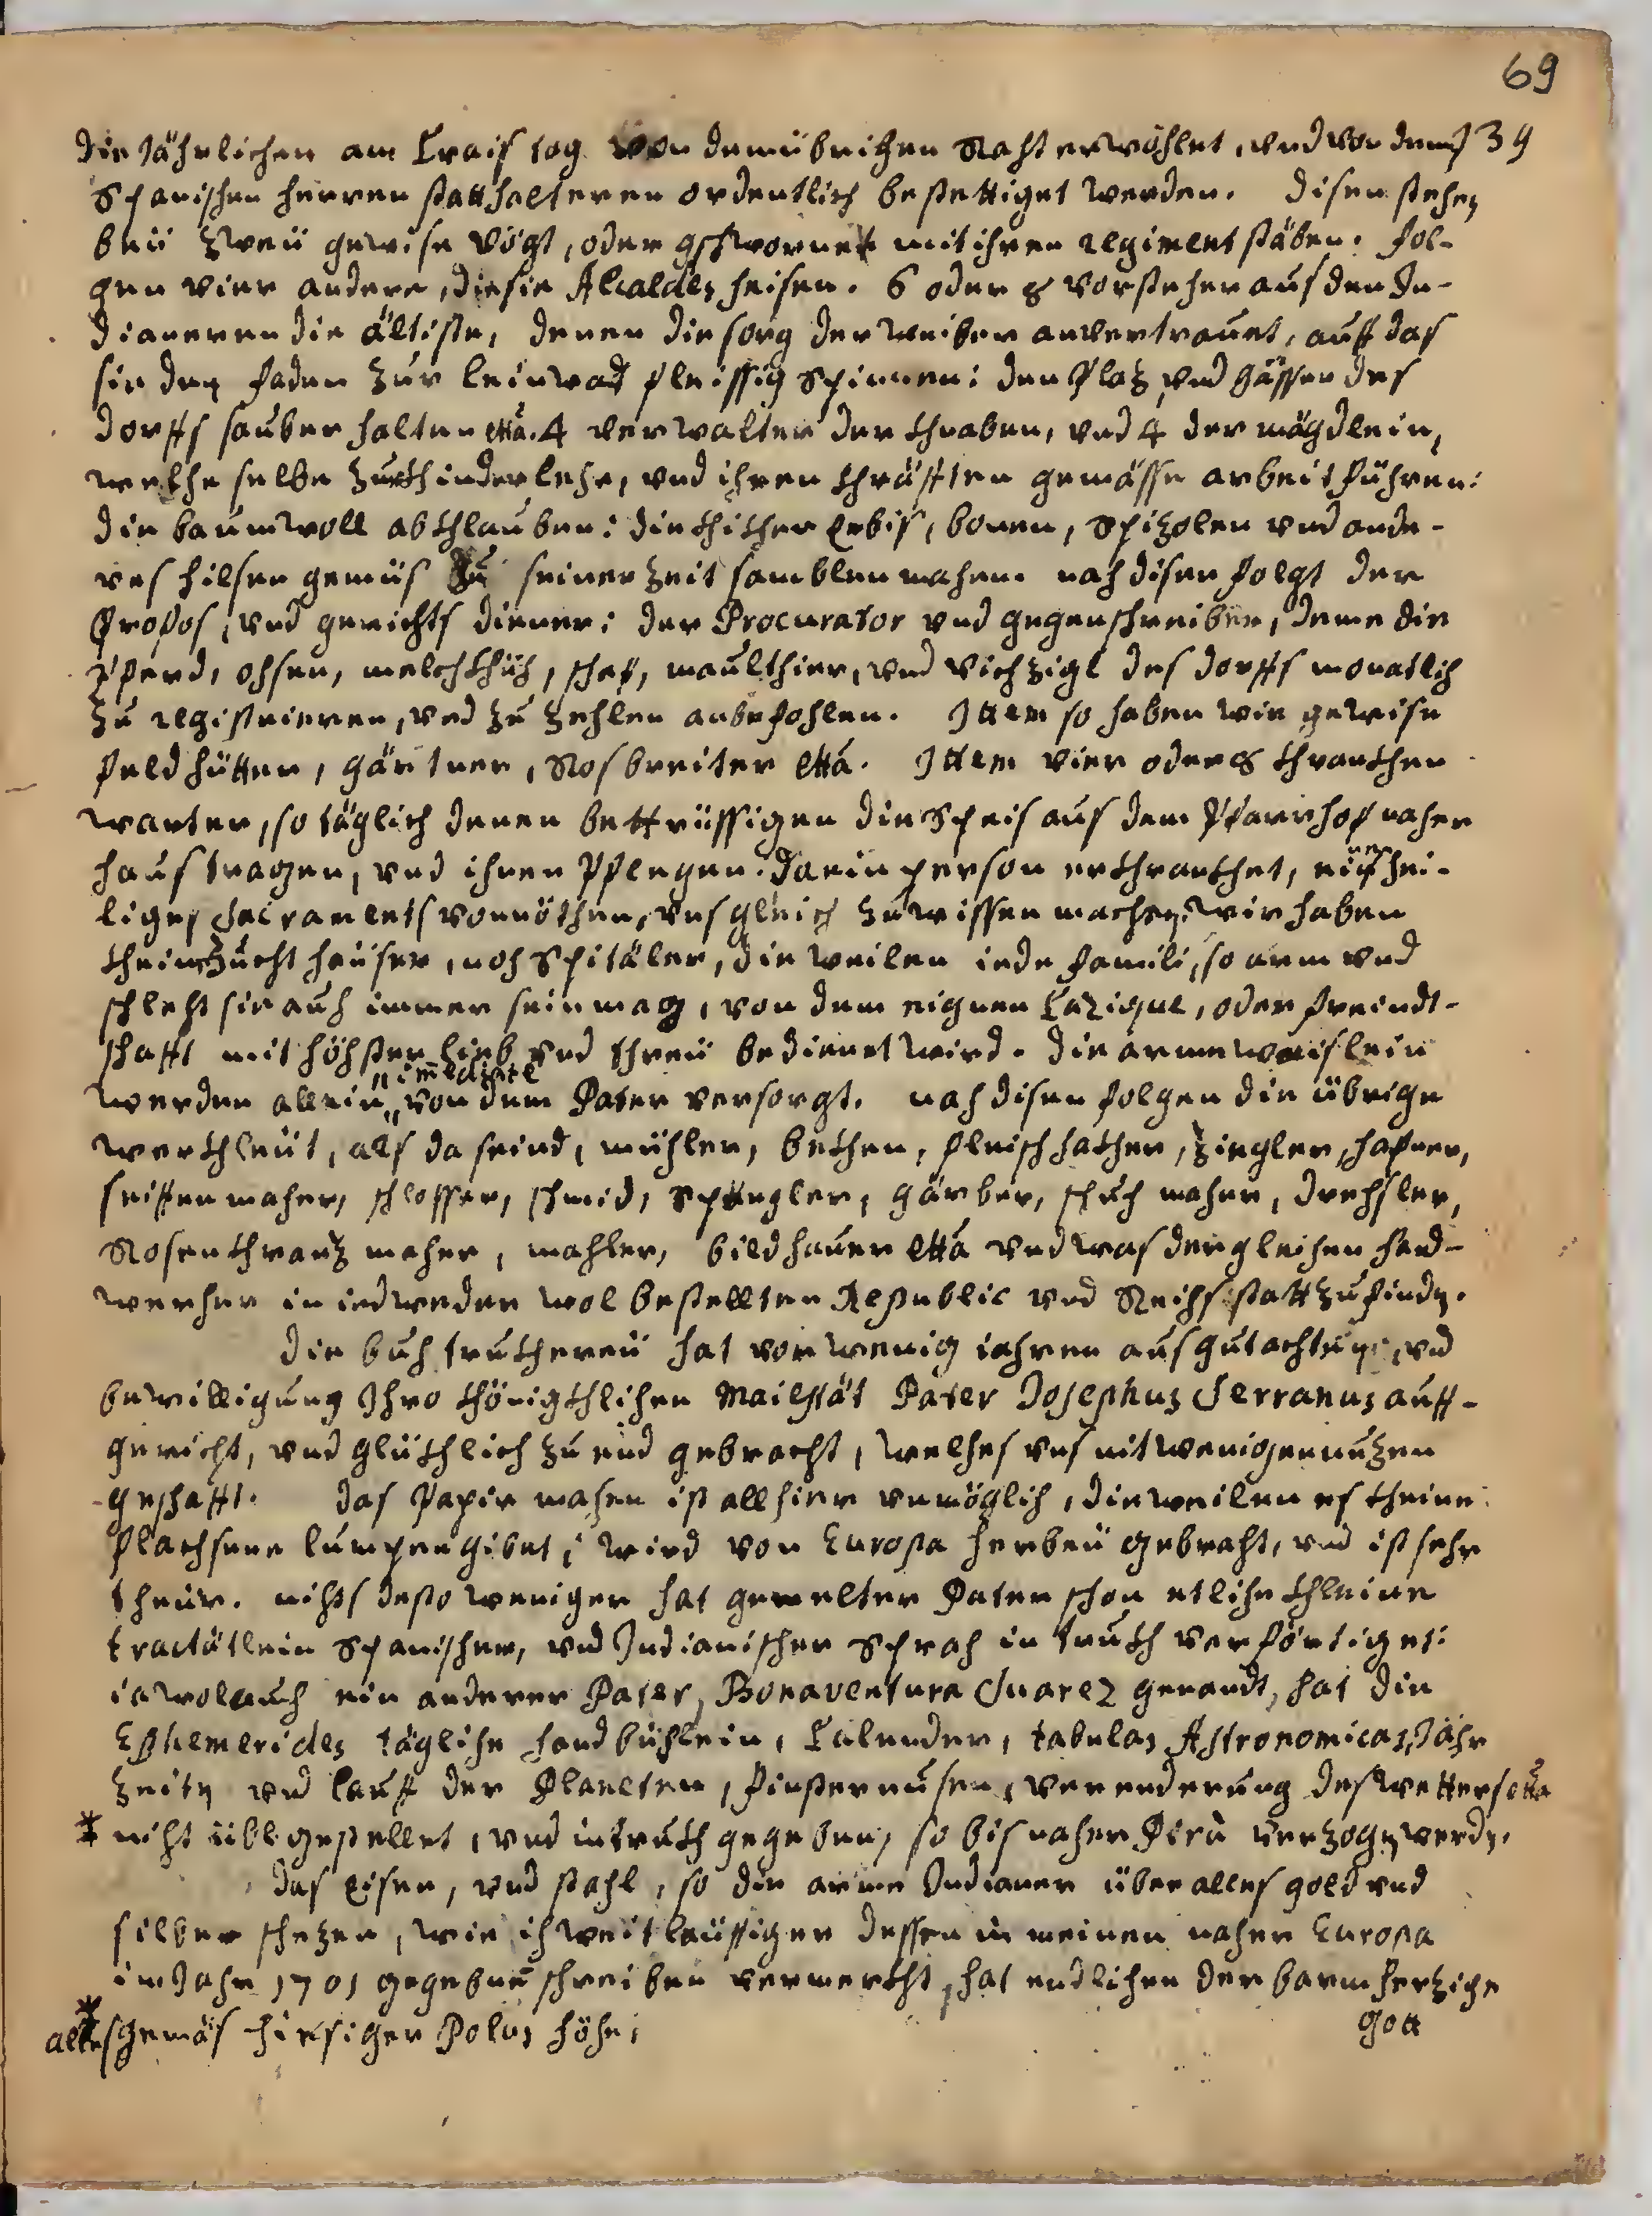 69
die Jährlichen am Crais tag von dem übrigen Raht erwöhlet, und von dem 39
Spanischen herren statthalteren ordentlich bestettiget werden. disen stehen
beü zweü gewise Vögt, oder gschworne mit ihren regiment stäben. fol-
gen vier andere, die sie Alcaldes heisen. 6 oder 8 vorsteher aus den In-
dianeren die ältiste, denen die sorg der weiber anvertrauet, auff das
sie den faden zur leinwad fleissig spinnen: den plaz, und gässen des
dorffs sauber halten etta. 4 verwalter der chnaben, und 4 der mägdlein,
welche selbe zur chinderlehr, und ihren chräfften gemässe arbeit führen:
die baumwoll abchlauben: die chicher erbis, bonen, spizolen und ande-
res hilsen gemüs zu seiner zeit samblen machen. nach disen folgt der
Profos, und gerichts diener: der Procurator und gegenschreiber, deme die
Pferd, ochsen, melchchüh, schaf, maulthier, und vich zigl des dorffs monatlich
zu registrieren, und zu zehlen anbefohlen. Ittem so haben wir gewise
feld hütter, gärtner, Rosbreiter etta. Ittem vier oder 8 chranchen
warter, so täglich denen bettrüssigen die Speis aus dem Pfarrhof nacher
haus tragen, und ihnen Pflegen. da ein person erchranchet, eines hei-
ligen Sacraments vonnöthen, uns gleich zu wissen machen. wir haben
chein zucht heüser, noch Spitäler, die weilen iede famili, so arm und
schlecht sie auch immer sein mag, von dem eignen Cazique, oder freindt-
schafft mit höchster lieb und threü bedienet wird. die arme waislein
werden allein „imediate von dem Pater versorgt. nach disen folgen die übrige
werchleüt, als da seind, mühler, bechen, fleischhacher, ziegler, hafner,
seiffenmacher, schlosser, schmid, Spengler, gärber, schuch macher, drechsler,
Rosenchranz macher, mahler, bildhauer etta und was dergleichen hand-
wercher in iedweder wol bestellten Republic und Reichs statt zu finden.
die buch truchereü hat vor wenig iahren aus gutachtung, und
bewilligung Ihro chönigchlichen Maiestät Pater Josephus Serranus auff-
gericht, und glüchlich zu end gebracht, welches uns nit weniger nuzen
geschafft. das Papir machen ist allhier unmöglich, die weilen es cheine
flachsene lumpen gibet; wird von Europa herbeü gebracht, und ist sehr
theür. nichts desto weniger hat gemelter Pater schon etliche chleine
tractätlein Spanischer, und Indianischer Sprach in truch verförtiget:
ia wol auch ein anderer Pater, Bonaventura Suarez genandt, hat die
Ephemerides tägliche handbüchlein, Calender, tabulas Astronomicas, Jahr
zeiten und lauff der Planeten, finsternusen, verenderung des wetters etta
* nicht übl gestellet, und in truch gegeben, so bis nacher Perù verzogen werden.
das eisen, und stahl, so die arme Indianer über alles gold und
silber schezen, wie ich weitleüffiger dessen in meinen nacher Europa
im Jahr 1701 gegebnen schreiben vermercht, hat endlichen der barmherzige
* alles gemäs hiesiger Polus höhe;
Gott